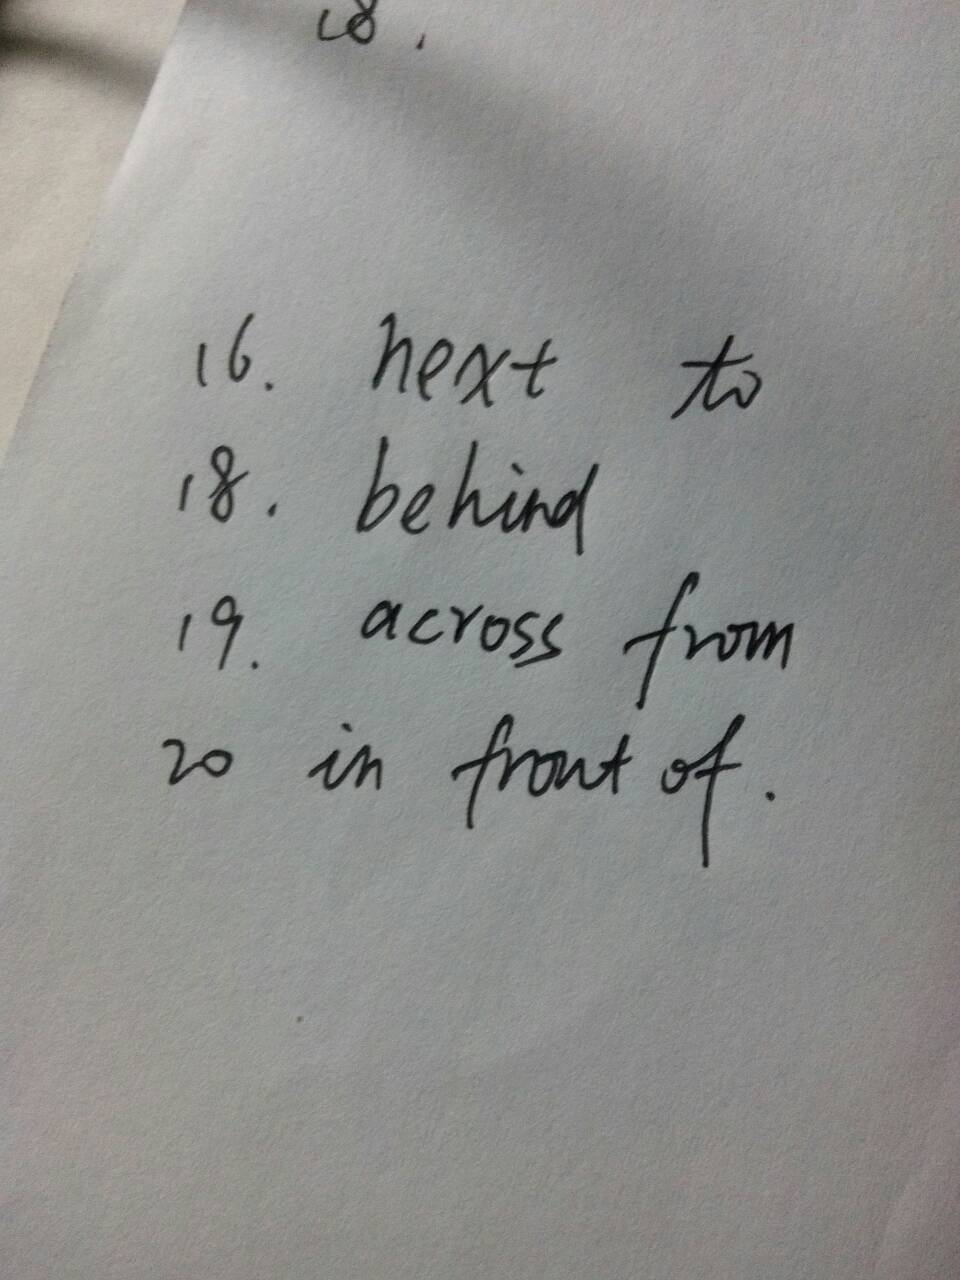 18.
16. next to
18. behind
19. across from
20 in front of.